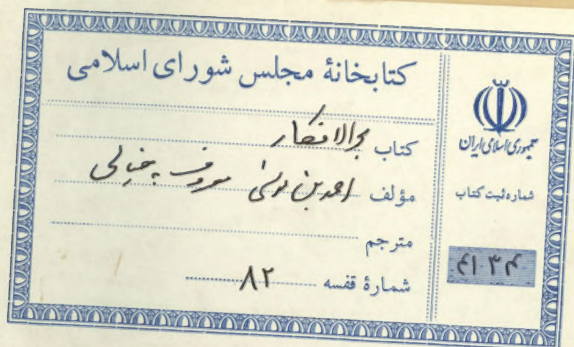 کتابخانهٔ مجلس شورای اسلامی
کتاب بحرالافکار
مؤلف احمد بن موسی معروف به خیالی
مترجم
شمارهٔ قفسه ۸۲
جمهوری اسلامی ایران
شماره ثبت کتاب